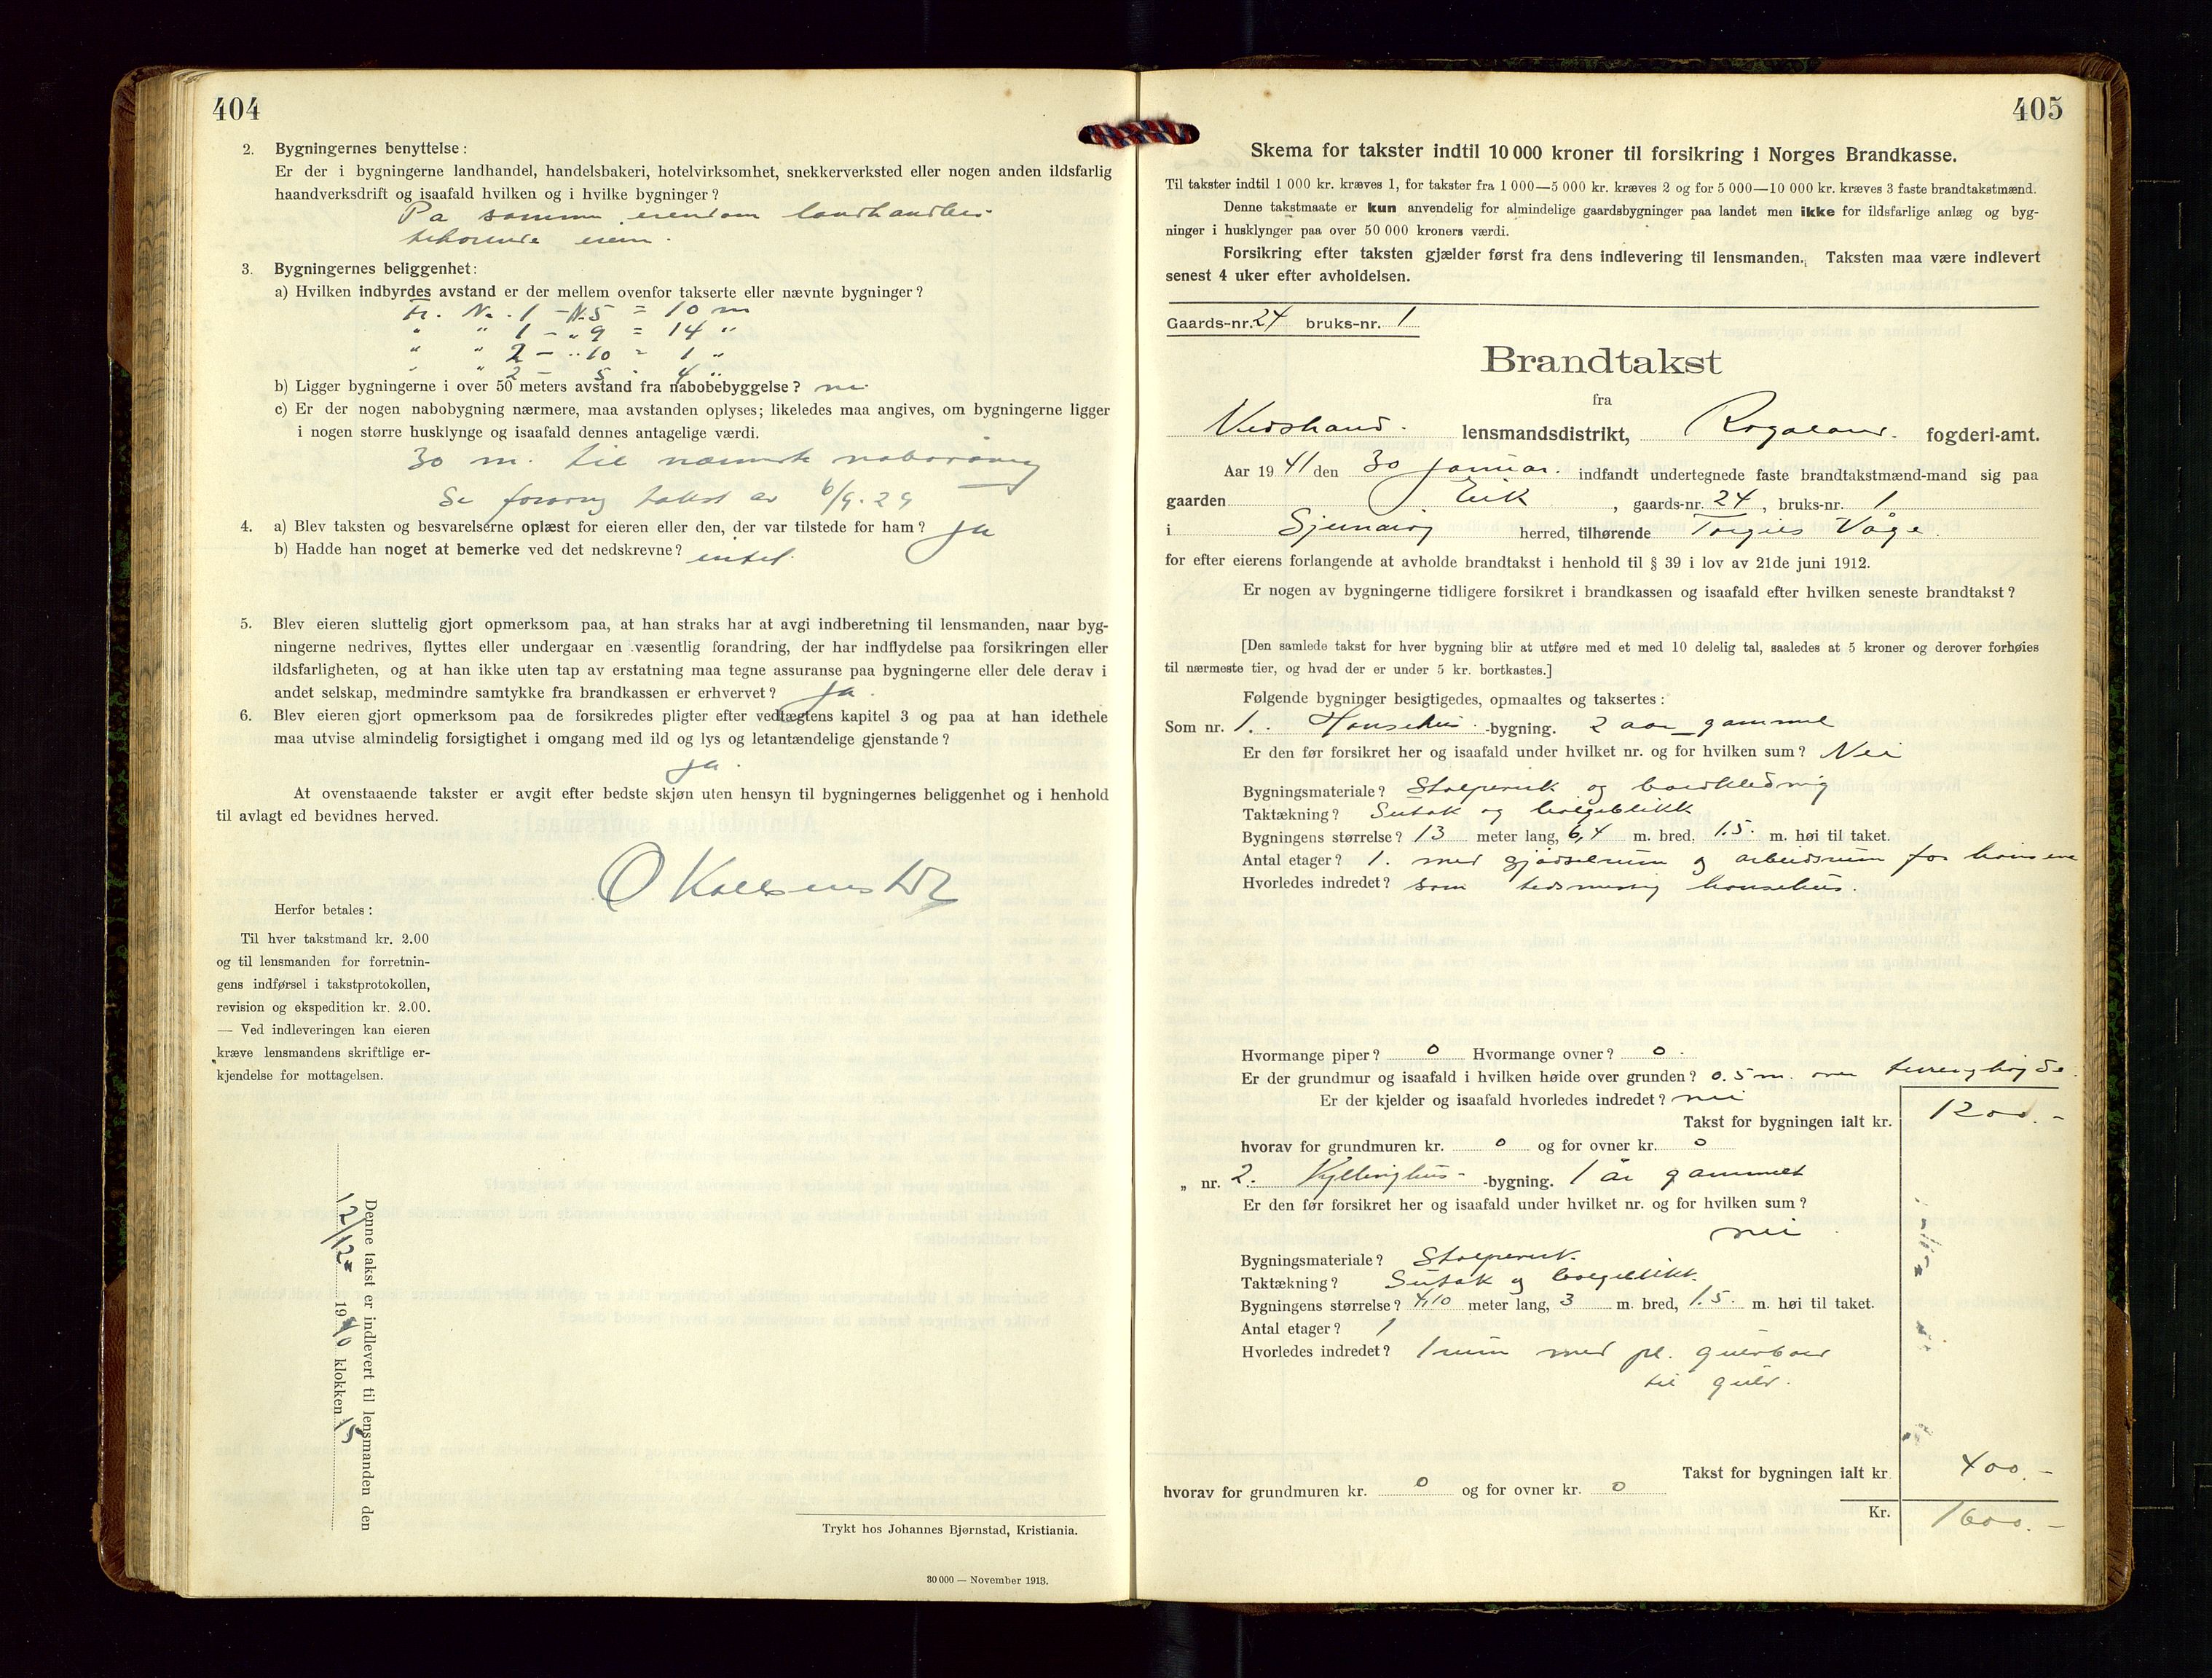 404
2. Bygningernes benyttelse:
Er der i bygningerne landhandel, handelsbakeri, hotelvirksomhet, snekkerverksted eller nogen anden ildsfarlig
haandverksdrift og isaafald hvilken og i hvilke bygninger?
På samme eiendom landhandleri
tilhørende eieren.
3. Bygningernes beliggenhet:
a) Hvilken indbyrdes avstand er der mellem ovenfor takserte eller nævnte bygninger?
Fr. No. 1 - N. 5 = 10 m
" " 1 - " 9 = 14 "
" " 2 - " 10 = 1 "
" " 2 - 5 - 4 "
b) Ligger bygningerne i over 50 meters avstand fra nabobebyggelse? nei
c) Er der nogen nabobygning nærmere, maa avstanden oplyses; likeledes maa angives, om bygningerne ligger
i nogen større husklynge og isaafald dennes antagelige værdi.
30 m. til nærmeste
Se forøvrig takst av 6/9-29
4. a) Blev taksten og besvarelserne oplæst for eieren eller den, der var tilstede for ham? Ja
b) Hadde han noget at bemerke ved det nedskrevne? intet.
5. Blev eieren sluttelig gjort opmerksom paa, at han straks har at avgi indberetning til lensmanden, naar byg-
ningerne nedrives, flyttes eller undergaar en væsentlig forandring, der har indflydelse paa forsikringen eller
ildsfarligheten, og at han ikke uten tap av erstatning maa tegne assuranse paa bygningerne eller dele derav i
andet selskap, medmindre samtykke fra brandkassen er erhvervet? ja.
6. Blev eieren gjort opmerksom paa de forsikredes pligter efter vedtægtens kapitel 3 og paa at han idethele
maa utvise almindelig forsigtighet i omgang med ild og lys og letantændelige gjenstande?
ja.
At ovenstaaende takster er avgit efter bedste skjøn uten hensyn til bygningernes beliggenhet og i henhold
til avlagt ed bevidnes herved.
Herfor betales:
Til hver takstmand kr. 2.00
og til lensmanden for forretnin-
gens indførsel i takstprotokollen,
revision og ekspedition kr. 2.00.
— Ved indleveringen kan eieren
kræve lensmandens skriftlige er-
kjendelse for mottagelsen.
Denne takst er indlevert til lensmanden den
12/12- 1940 klokken 15
Trykt hos Johannes Bjørnstad, Kristiania.
30 000 — November 1913.
405
Skema for takster indtil 10 000 kroner til forsikring i Norges Brandkasse.
Til takster indtil 1 000 kr. kræves 1, for takster fra 1 000—5 000 kr. kræves 2 og for 5 000—10 000 kr. kræves 3 faste brandtakstmænd.
Denne takstmaate er kun anvendelig for almindelige gaardsbygninger paa landet men ikke for ildsfarlige anlæg og byg-
ninger i husklynger paa over 50 000 kroners værdi.
Forsikring efter taksten gjælder først fra dens indlevering til lensmanden. Taksten maa være indlevert
senest 4 uker efter avholdelsen.
Gaards-nr. 24 bruks-nr. 1
Brandtakst
fra
Nedstrand. lensmandsdistrikt, Rogaland. fogderi-amt.
Aar 1941 den 30 januar. indfandt undertegnede faste brandtakstmænd-mand sig paa
gaarden Eik, gaards-nr. 24, bruks-nr. 1
i Sjernarøy herred, tilhørende Torgils Våge.
for efter eierens forlangende at avholde brandtakst i henhold til § 39 i lov av 21de juni 1912.
Er nogen av bygningerne tidligere forsikret i brandkassen og isaafald efter hvilken seneste brandtakst?
[Den samlede takst for hver bygning blir at utføre med et med 10 delelig tal, saaledes at 5 kroner og derover forhøies
til nærmeste tier, og hvad der er under 5 kr. bortkastes.]
Følgende bygninger besigtigedes, opmaaltes og taksertes:
Som nr. 1. Hønsehus -bygning. 2 aar gammel
Er den før forsikret her og isaafald under hvilket nr. og for hvilken sum? Nei
Bygningsmateriale? Stolperverk og bordkledning
Taktækning? Sutak og bølgeblikk
Bygningens størrelse? 13 meter lang, 6,4 m. bred, 1.5. m. høi til taket.
Antal etager? 1. med gjødselrum og arbeidsrum for hønsene
Hvorledes indredet? som tidsmessig hønsehus.
Hvormange piper? 0 Hvormange ovner? 0
Er der grundmur og isaafald i hvilken høide over grunden? 0.5 m. over terrenghøyde.
Er der kjelder og isaafald hvorledes indredet? nei
Takst for bygningen ialt kr. 1200.-
hvorav for grundmuren kr. 0 og for ovner kr. 0
„ nr. 2. Kyllinghus -bygning. 1 år gammelt
Er den før forsikret her og isaafald under hvilket nr. og for hvilken sum?
nei
Bygningsmateriale? Stolperverk.
Taktækning? Sutak og bølgeblikk.
Bygningens størrelse? 4,10 meter lang, 3 m. bred, 1.5. m. høi til taket.
Antal etager? 1
Hvorledes indredet? 1 rum med pl. gulvbord
til gulv.
Takst for bygningen ialt kr. 400.-
hvorav for grundmuren kr. 0 og for ovner kr. 0
Kr. 1600.-